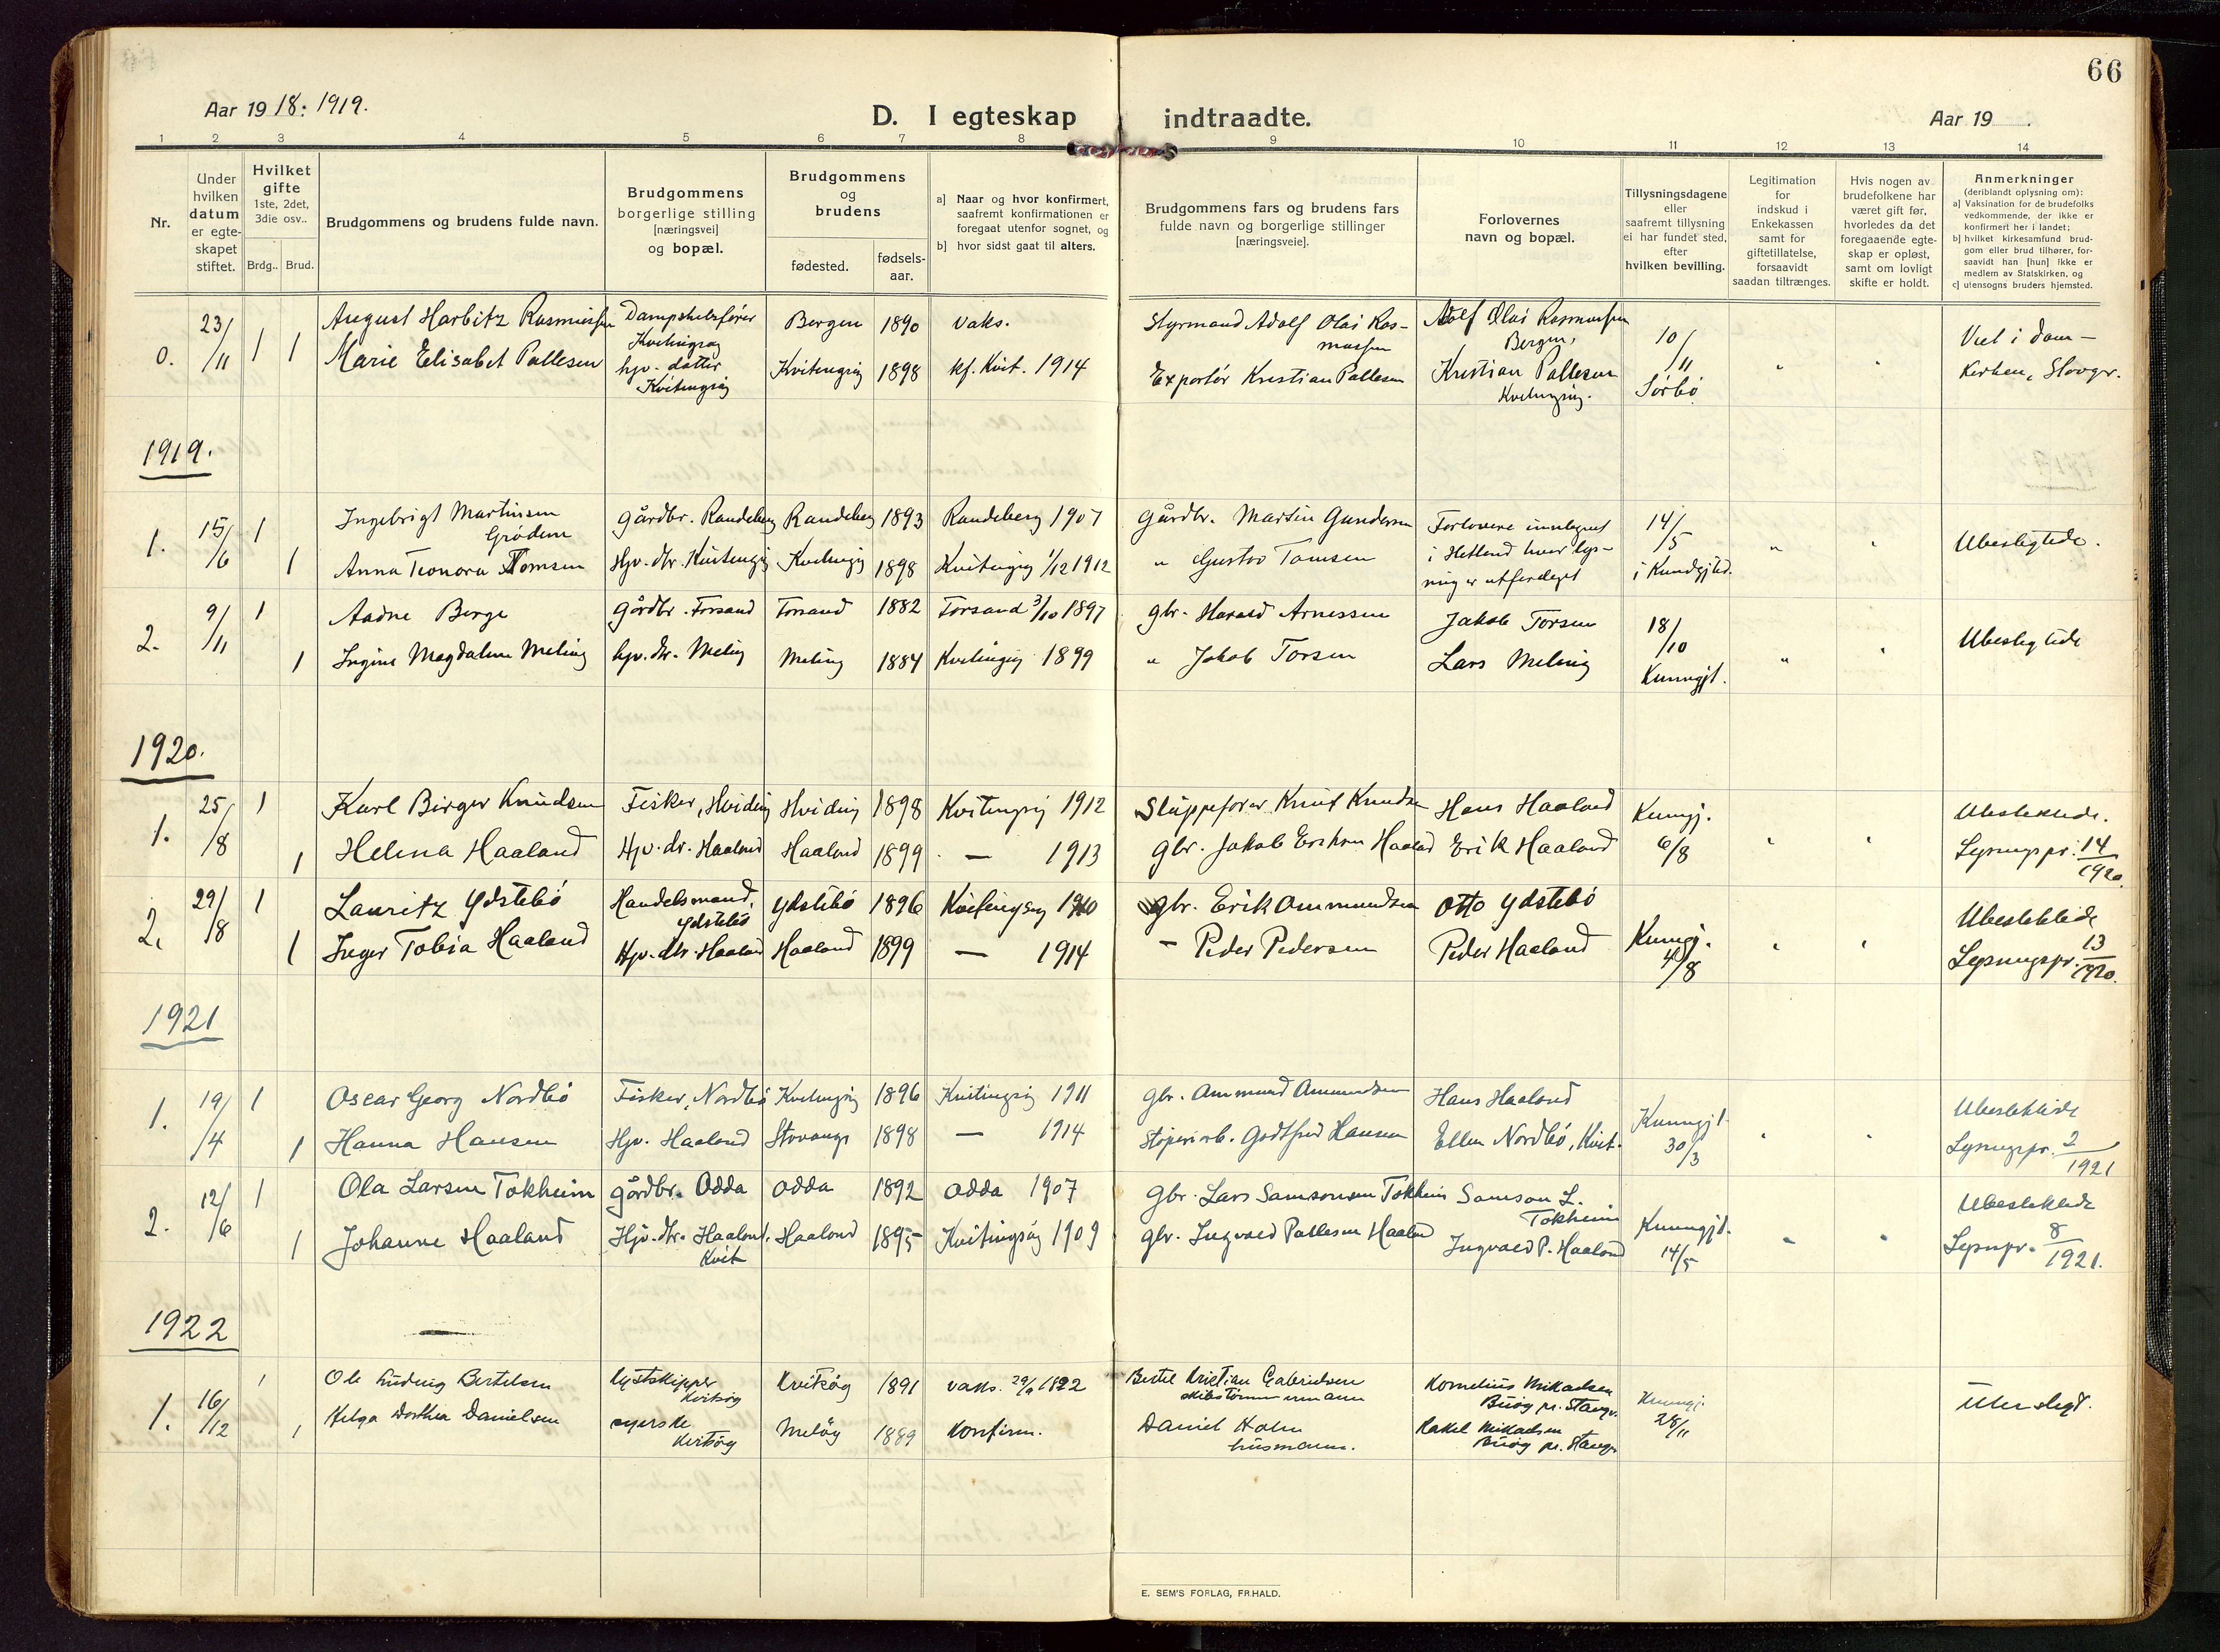 66
Aar 1918: 1919.
D. I egteskap indtraadte.
Aar 19 .
1 2 3 4 5 6 7 8 9 10 11 12 13 14
Nr.
Under
hvilken
datum
er egte-
skapet
stiftet.
Hvilket
gifte
1ste, 2det,
3die osv..
Brdg.. Brud.
Brudgommens og brudens fulde navn.
Brudgommens
borgerlige stilling
[næringsvei]
og bopæl.
Brudgommens
og
brudens
fødested.
fødsels-
aar.
a] Naar og hvor konfirmert,
saafremt konfirmationen er
foregaat utenfor sognet, og
b] hvor sidst gaat til alters.
Brudgommens fars og brudens fars
fulde navn og borgerlige stillinger
[næringsveie].
Forlovernes
navn og bopæl.
Tillysningsdagene
eller
saafremt tillysning
ei har fundet sted,
efter
hvilken bevilling.
Legitimation
for
indskud i
Enkekassen
samt for
giftetillatelse,
forsaavidt
saadan tiltrænges.
Hvis nogen av
brudefolkene har
været gift før,
hvorledes da det
foregaaende egte-
skap er opløst,
samt om lovligt
skifte er holdt.
Anmerkninger
(deriblandt oplysning om):
a] Vaksination for de brudefolks
vedkommende, der ikke er
konfirmert her i landet;
b] hvilket kirkesamfund brud-
gom eller brud tilhører, for-
saavidt han [hun] ikke er
medlem av Statskirken, og
c] utensogns bruders hjemsted.
0. 23/11 1 1
August Harbitz Rasmussen
Kvitingsøy
Bergen 1890 vaks.
Styrmand Adolf Olai Ras-
mussen
Adolf Olai Rasmussen
Bergen,
10/11
Sørbö
Marie Elisabet Pallesen
hjv. datter
Kvitingsøy
Kvitingsøy 1898 kf. Kvit. 1914
Exportör Kristian Pallesen
Kristian Pallesen
Kvitingsøy.
Viet i dom-
kirken, Stavgr.
1919.
1. 15/6 1
Ingebrigt Martinsen
Grödem
Gårdbr. Randeberg Randeberg 1893 Randeberg 1907
Gårdbr. Martin Gundersen
Forlovere innlagret
i Hetland hvor lys-
ning er utferdiget
14/5
i Kundgjted.
Ubeslegtede.
1 Anna Teonora Tomsen
Hjv. dtr. Kvitingsøy Kvitingsøy 1898 Kvitingsøy 1/12 1912
" Gustav Tomsen
2. 9/11 1
Aadne Berge
Gårdbr. Forsand Forsand 1882 Forsand 3/10 1897
gbr. Harald Arnessen
Jakob Torsen
18/10
Kunngjt.
Ubeslegtede
1 Ingine Magdalene Meling
hjv. dtr. Meling Meling 1884 Kvitingsøy 1899
" Jakob Torsen
Lars Meling
1920.
1. 25/8 1
Karl Birger Knudsen
Fisker, Hviding Hviding 1898 Kvitingsøy 1912
Sluppeförer Knut Knudsen
Hans Haaland
Kunngj.
6/8
Ubeslektede.
Lysningspr. 14/1920
1 Helena Haaland
Hjv. dr. Haaland Haaland 1899 — 1913
Gbr. Jakob Eriksen Haaland
Erik Haaland
2. 29/8 1
Lauritz Ydstebö
Handelsmand,
Ydstebö
Ydstebö 1896 Kvitingsøy 1910
gbr. Erik Ommundsen
Otto Ydstebö
Kunngj.
4/8
Ubeslektede
Lysningspr. 13/1920.
1 Inger Tobia Haaland
Hjv. dtr. Haaland Haaland 1899 — 1914
- Peder Pedersen
Peder Haaland
1921
1. 19/4 1
Oscar Georg Nordbö
Fisker, Nordbö Kvitingsøy 1896 Kvitingsøy 1911
Gbr. Ommund Ommundsen
Hans Haaland
Kunngjt.
30/3
Ubeslektede
Lysningspr. 2/1921
1 Hanna Hansen
Hjv. Haaland Stavanger 1898 — 1914
Støperiarb. Godtfred Hansen
Ellen Nordbö, Kvit.
2. 12/6 1
Ola Larsen Tokheim
Gårdbr. Odda Odda 1892 Odda 1907
Gbr. Lars Samsonsen Tokheim
Samson L.
Tokheim
Kunngjt.
14/5
Ubeslektede
Lysnpr. 8/1921.
1 Johanne Haaland
Hjv. dtr. Haaland.
Kvit
Haaland 1895 Kvitingsøy 1909
Gbr. Ingvald Pallesen Haaland
Ingvald P. Haaland
1922
1. 16/12 1
Ole Ludvig Bertelsen
Lystskipper
Kvitsøy
Kvitsøy 1891 vaks. 29/9 1922
Bertel Kristian Gabrielsen
skibstömmermann
Kornelius Mikaelsen
Buöy pr. Stavgr.
Kunngj.
28/11
Ubeslegt.
1 Helga Dorthea Danielsen
syerske
Kvitsøy
Meløy 1889 Konfirm.
Daniel Holm
husmann.
Rakel Mikaelsen
Buöy pr. Stavgr.
E. SEM'S FORLAG, FR.HALD.